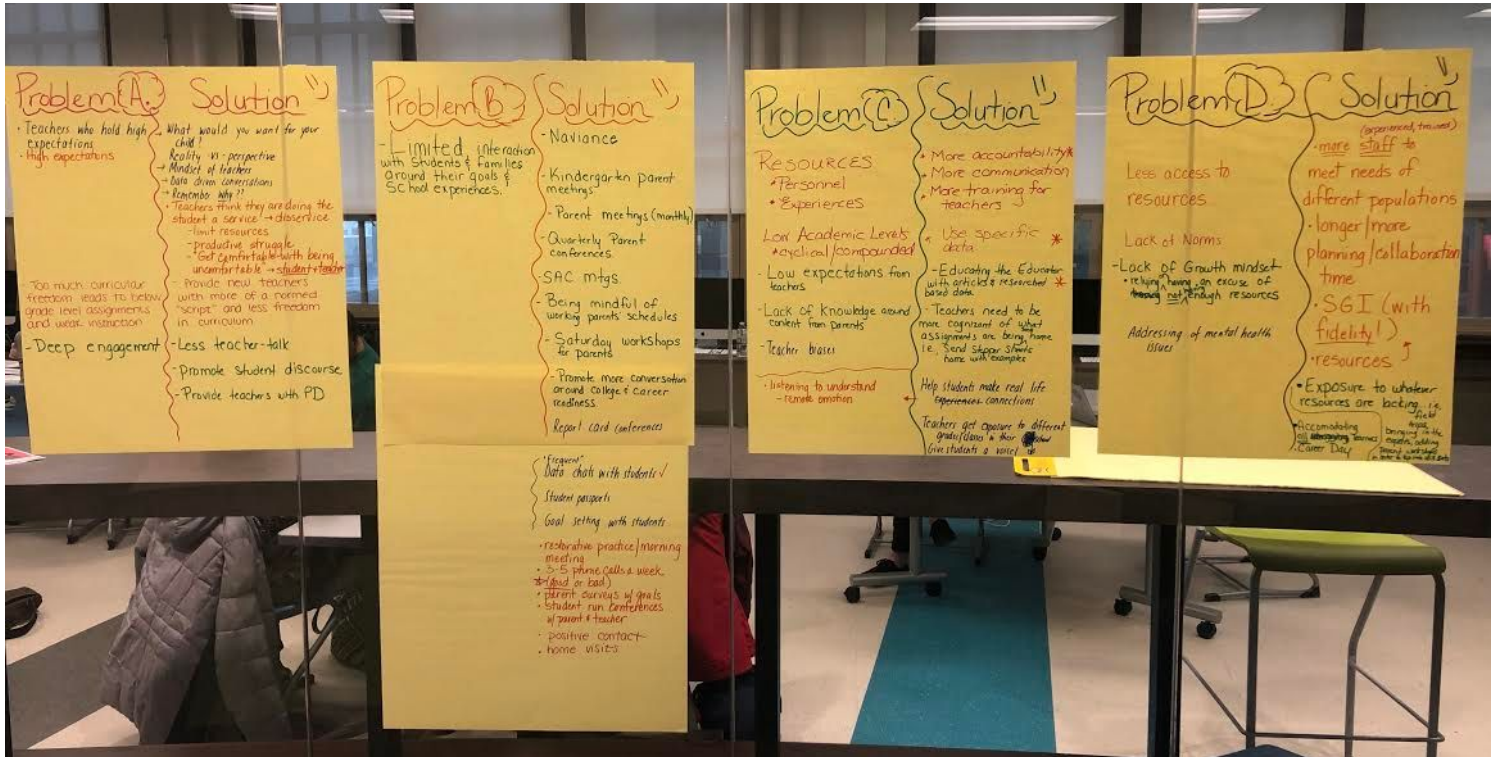 Problem A.
• Teachers who hold high
expectations
• High expectations
- Too much curricular
freedom leads to below
grade level assignments
and weak instruction
- Deep engagement
Solution
→ What would you want for your
child?
Reality vs. perspective
→ Mindset of teachers
→ Data driven conversations
→ Remember why??
• Teachers think they are doing the
student a service → disservice
- limit resources
- productive struggle
- "Get comfortable with being
uncomfortable → student + teacher
- Provide new teachers
with more of a normed
"script" and less freedom
in curriculum
- Less teacher-talk
- Promote student discourse
- Provide teachers with PD
Problem B
- Limited interaction
with students & families
around their goals &
school experiences.
Solution
- Naviance
- Kindergarten parent
meetings
- Parent meetings (monthly)
- Quarterly Parent
conferences.
- SAC mtgs.
- Being mindful of
working parents' schedules
- Saturday workshops
for parents
- Promote more conversation
around college & career
readiness.
Report card conferences
"Frequent"
Data chats with students ✓
Student passports
Goal setting with students
• restorative practice/morning
meeting
• 3-5 phone calls a week
* (good or bad)
• parent surveys w/ goals
• student run conferences
w/ parent & teacher
• positive contact
• home visits
Problem C
RESOURCES
• Personnel
• Experiences
Low Academic Levels
• cyclical/compounded
- Low expectations from
teachers
- Lack of Knowledge around
content from parents
- Teacher biases
• listening to understand
- remote emotion
Solution
• More accountability *
• More communication
• More training for
teachers
• Use specific *
data
- Educating the Educator
with articles & researched *
based data.
- Teachers need to be
more cognizant of what
assignments are being home
i.e., Send Skipper Sheets
home with examples
Help students make real life
experiences connections
Teachers get exposure to different
grades/classes in their
Give students a voice!
Problem D.
Less access to
resources
Lack of Norms
- Lack of Growth mindset
• relying having an excuse of
not enough resources
Addressing of mental health
issues
Solution
(experienced, trained)
• more staff to
meet needs of
different populations
• longer/more
planning/collaboration
time
• SGI (with
fidelity!)
• resources
• Exposure to whatever
resources are lacking.. i.e.
field
trips,
bringing in the
experts, adding
parent workshops
• Accomodating
all learners
• Career Day